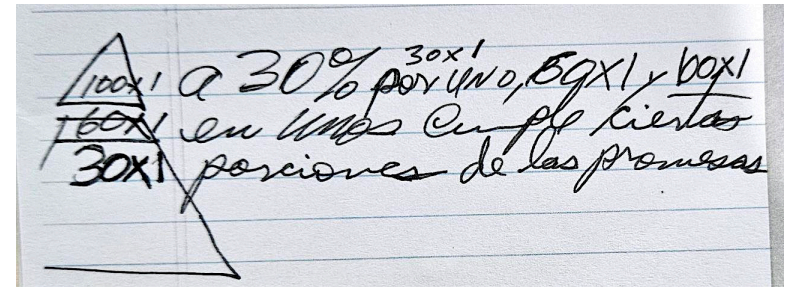 30x1
100x1 a 30% por uno, 59x1 y 60x1
60x1 en unos Cumple ciertas
30x1 porciones de las promesas